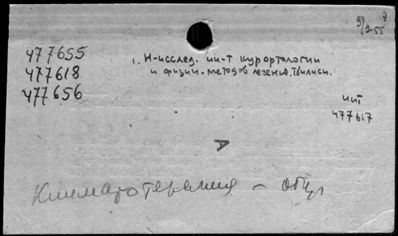 9/9-55
477655
477618
477656
1. Н-исслед. ин-т курортологии
и физич. методов лечения. Тбилиси.
ИИТ
477617
А
Климатотерапия - общ